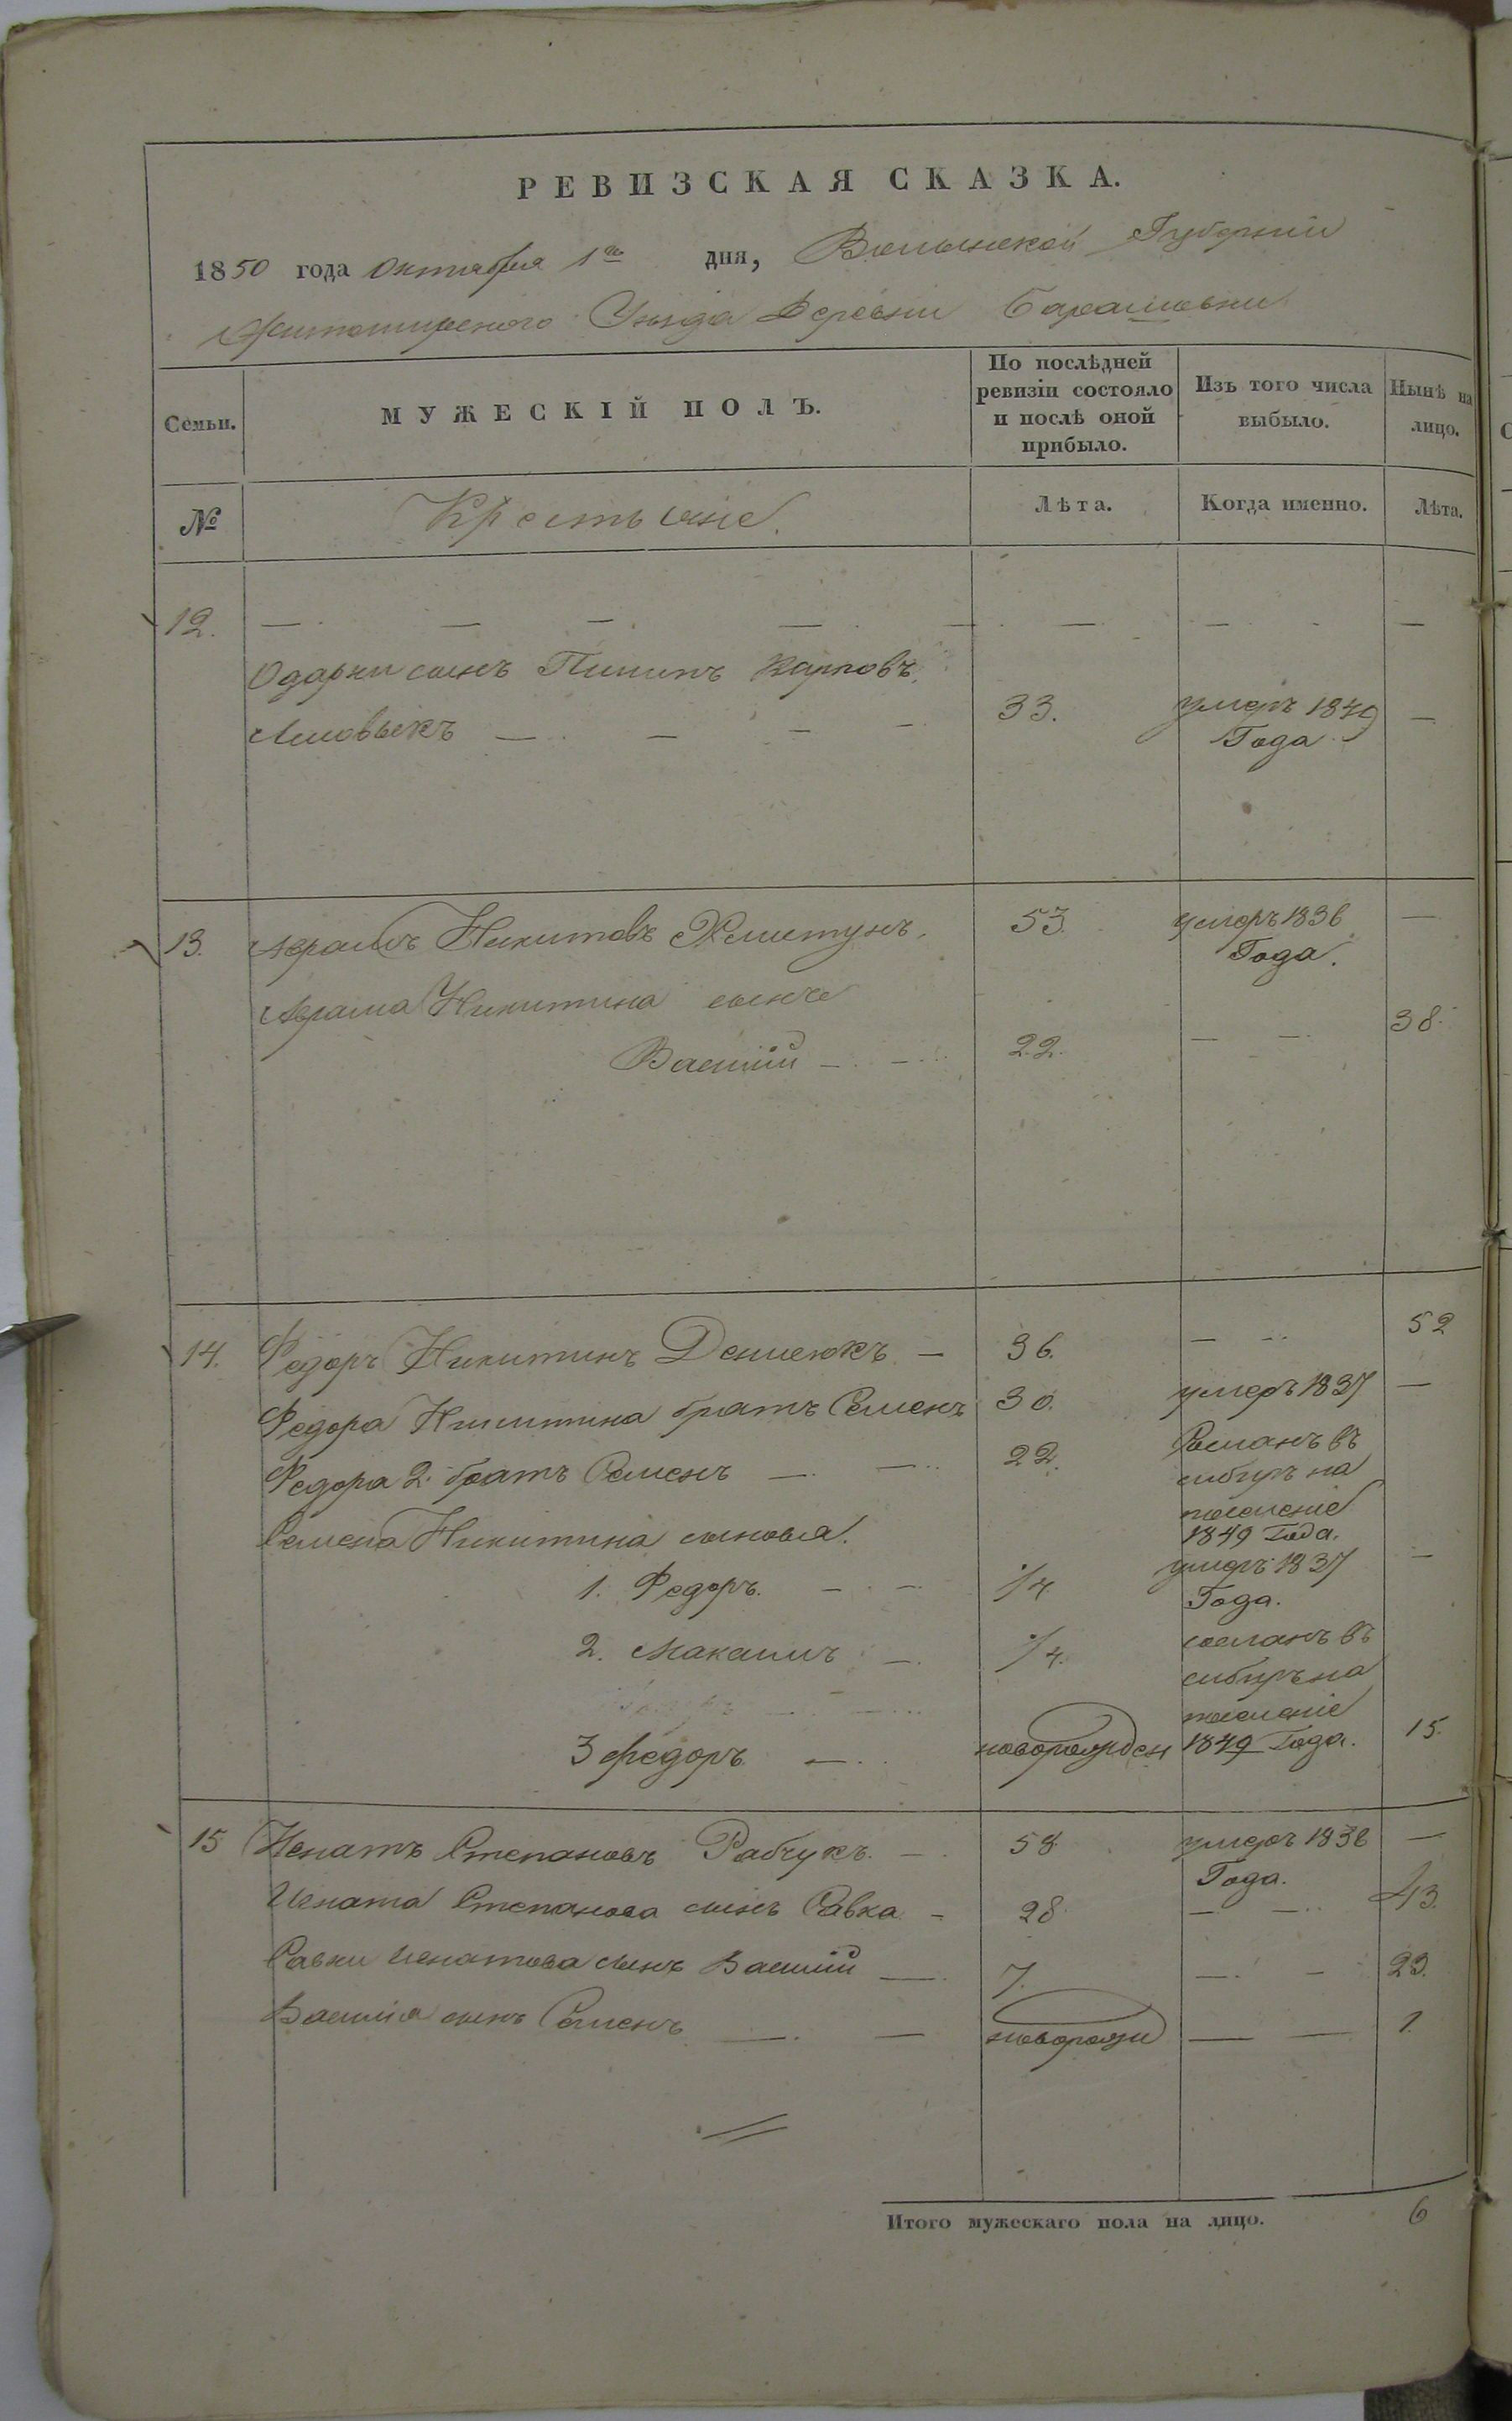 РЕВИЗСКАЯ СКАЗКА.
1850 года Октября 1го дня, Волынской Губернии
Житомирского Уезда Деревни Барашовки
Семьи.
МУЖЕСКІЙ ПОЛЪ.
По послѣдней ревизіи состояло и послѣ оной прибыло.
Изъ того числа выбыло.
Нынѣ на лицо.
№
Крестьяне.
Лѣта.
Когда именно.
Лѣта.
12. — — — — — — — —
Одарки сынъ Пилипъ Карповъ
— — — — 33. умеръ 1849 —
Года
13. Аврамъ Никитовъ 53. умеръ 1836 —
Года.
Аврама Никитина сынъ
Василій — — 22. — — 38.
14. Федоръ Никитинъ Денисюкъ — 36. — — 52
Федора Никитина братъ Семенъ 30. умеръ 1837 —
Федора 2. братъ Семенъ — — 22. Сосланъ въ
сибирь на
поселеніе
1849 Года.
Семена Никитина сыновья.
1. Федоръ. — — 1/4 умеръ 1837 —
Года.
2. Максимъ — 1/4. сосланъ въ
сибирь на
поселеніе
1849 Года.
3 Федоръ — новорожден 15.
15 Игнатъ Степановъ Рабчукъ. — 58 умеръ 1836 —
Года.
Игната Степанова сынъ Савка — 28 — — 43.
Савки Игнатова сынъ Василій — 7. — — 23.
Василія сынъ Семенъ — — новорожд — — 1.
Итого мужескаго пола на лицо. 6